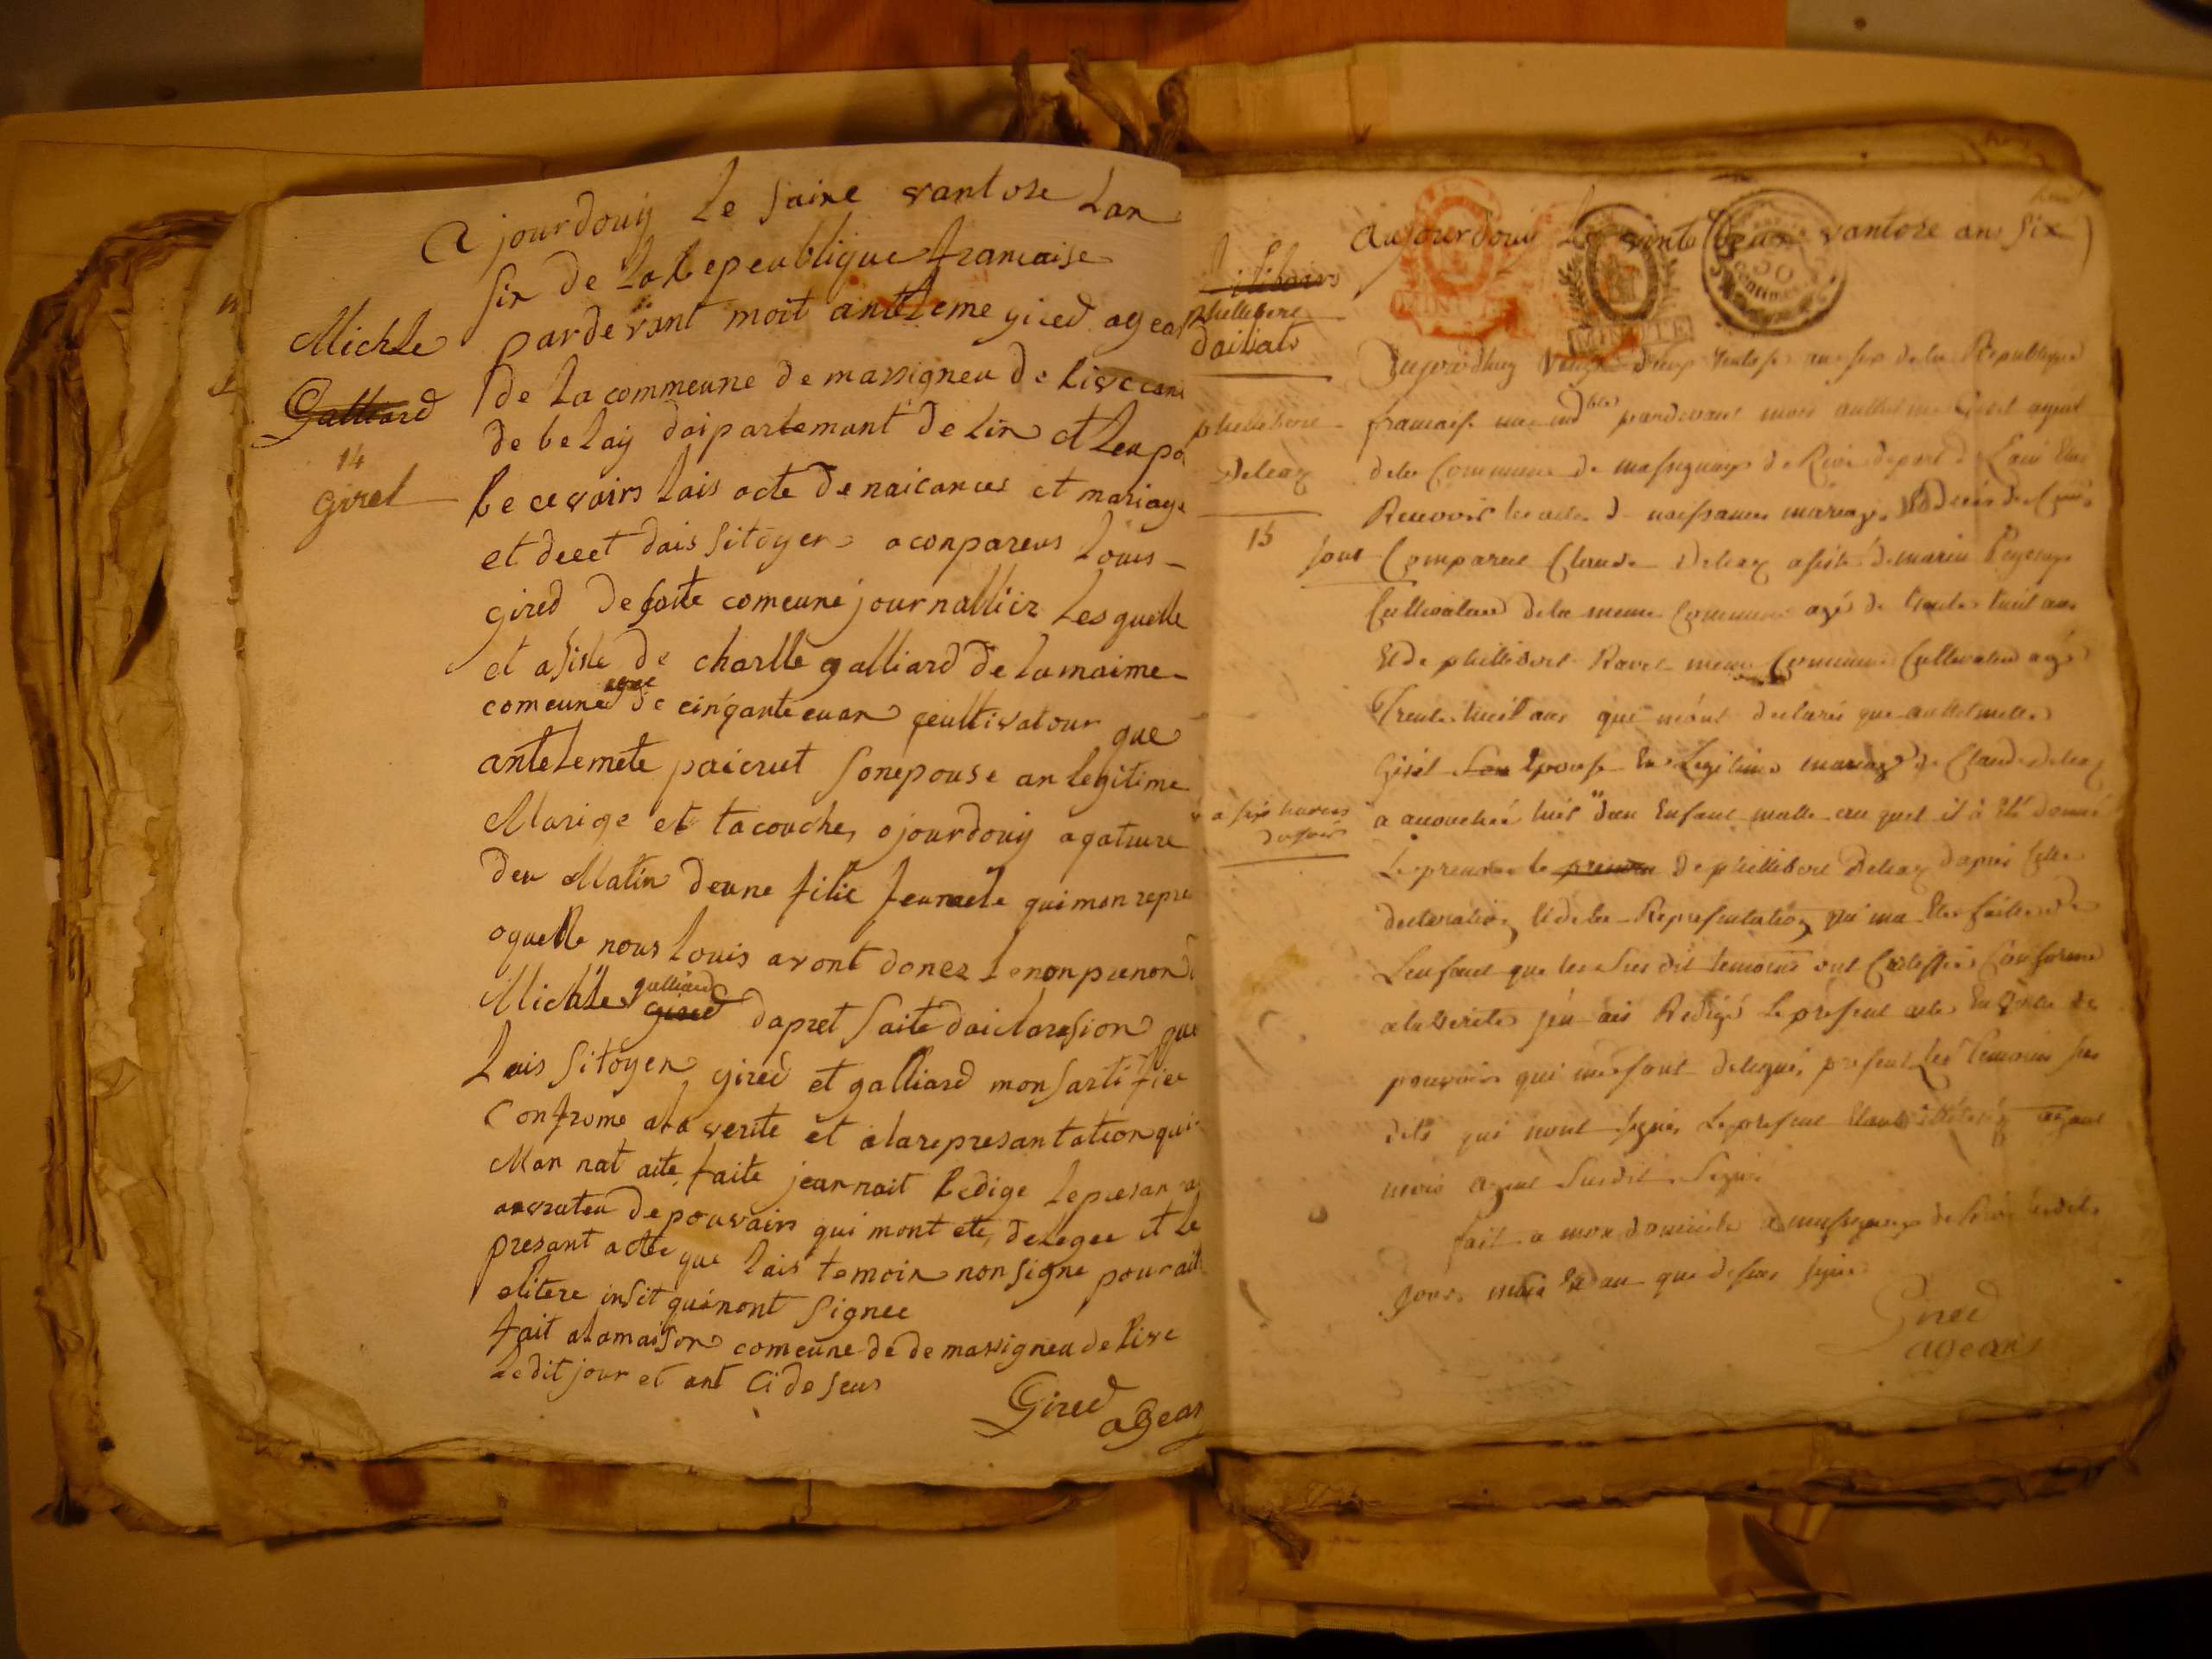 Ajourdouy le saire vantose lan
six de la Republique francaise
Michle
Galliard
14
girel
pardevant moit anteleme gired agean
de la commeune de massigneu de live can
de belay daipartemant de lin et leu po
Recevoirs lais acte de naicances et mariage
et decet dais sitoyen aconpareus louis
gired de saite comeune journallier lesquelle
et asiste de charlle galliard de la maime
comeune agee de cinqante eu an qeultivatour que
antelemete paicrut son epouse an legitime
Marige et tacouche ojourdouy a
deu Matin deune filie feumele qui mon repre
oquelle nous louis avont donez le non prenon d
Michle galliard gired dapret saite daiclarasion que
lais sitoyen gired et galliard mon sartifier
Confrome ala verite et ala represantation qui
Man nat aite faite jean nait Redige le presan a
an vrateu de pouvairs qui mont ete delegee et le
presant acte que lais temoin non signe pour ait
elitere insit qui nont signee
fait ala maison comeune de de massigneu de live
le dit jour et ant ci de seus
Gired
agean
Aujourdouy le vint deux vantose ans six
phillibere
daillat
phillibert
Deleaz
15
MINUTE
MINUTE
50
centimes
Dujourdhuy vingt deux ventose an six de la Republique
francaise une indble pardevant moi anthelme Girel agent
de la Commune de massignieu de Rive depart de L'ain Elu
Recevoir les actes de naissances mariages Décès des
sont Comparus Claude Deleaz assisté de marin
Cultivateur de la meme Commune agé de trente huit ans
Et de phillibert Ravet meme Commune Cultivateur agé
Trente huit ans qui mont declarés que anthelmette
Girel son Epouse En Legitime mariage de Claude Deleaz
a six heures
du soir
a accouchée hier d'un Enfant malle au quel il a été donné
Le prenom de phillibert Deleaz d'apres cette
declaration et de la Representation qui ma Eté faitte de
L'enfant que les sus dit temoins ont Certiffiés Conforme
a la verité jen ais Redigé Le présent acte En vertu de
pouvoirs qui me sont delegués présent Les Temoins sus
dits qui nont signé, Le present
mois agent Susdit Signé
fait a mon domicile a massignieux de Rive les dits
Jour, mois Et an que dessus signé
Gired
agean